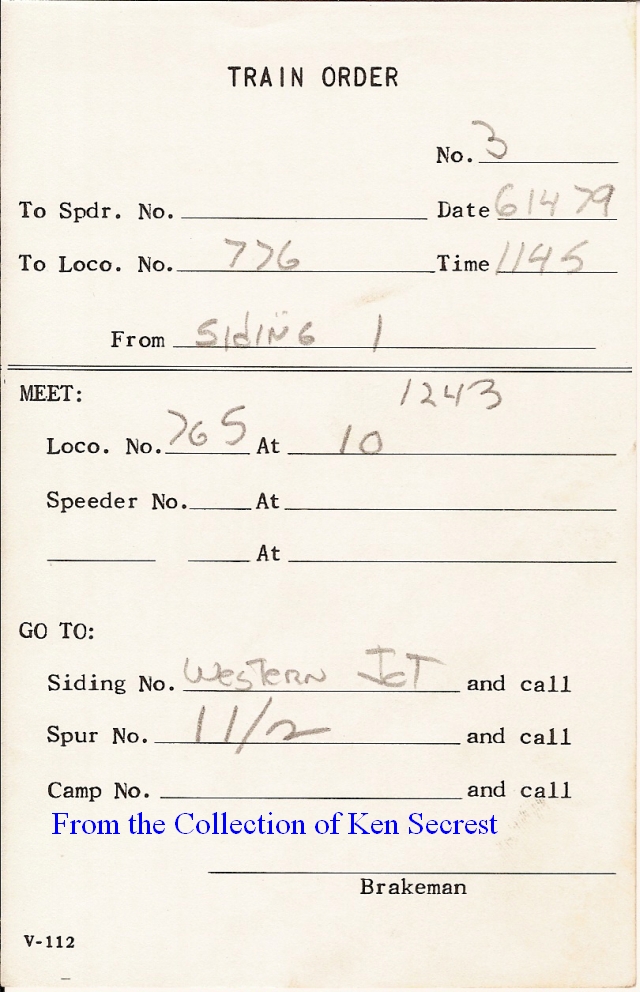 TRAIN ORDER
No. 3
To Spdr. No. Date 6 14 79
To Loco. No. 776 Time 1145
From SIDING 1
MEET: 1243
Loco. No. 765 At 10
Speeder No. At
At
GO TO:
Siding No. WESTERN JCT and call
Spur No. 11/2 and call
Camp No. and call
From the Collection of Ken Secrest
Brakeman
V-112